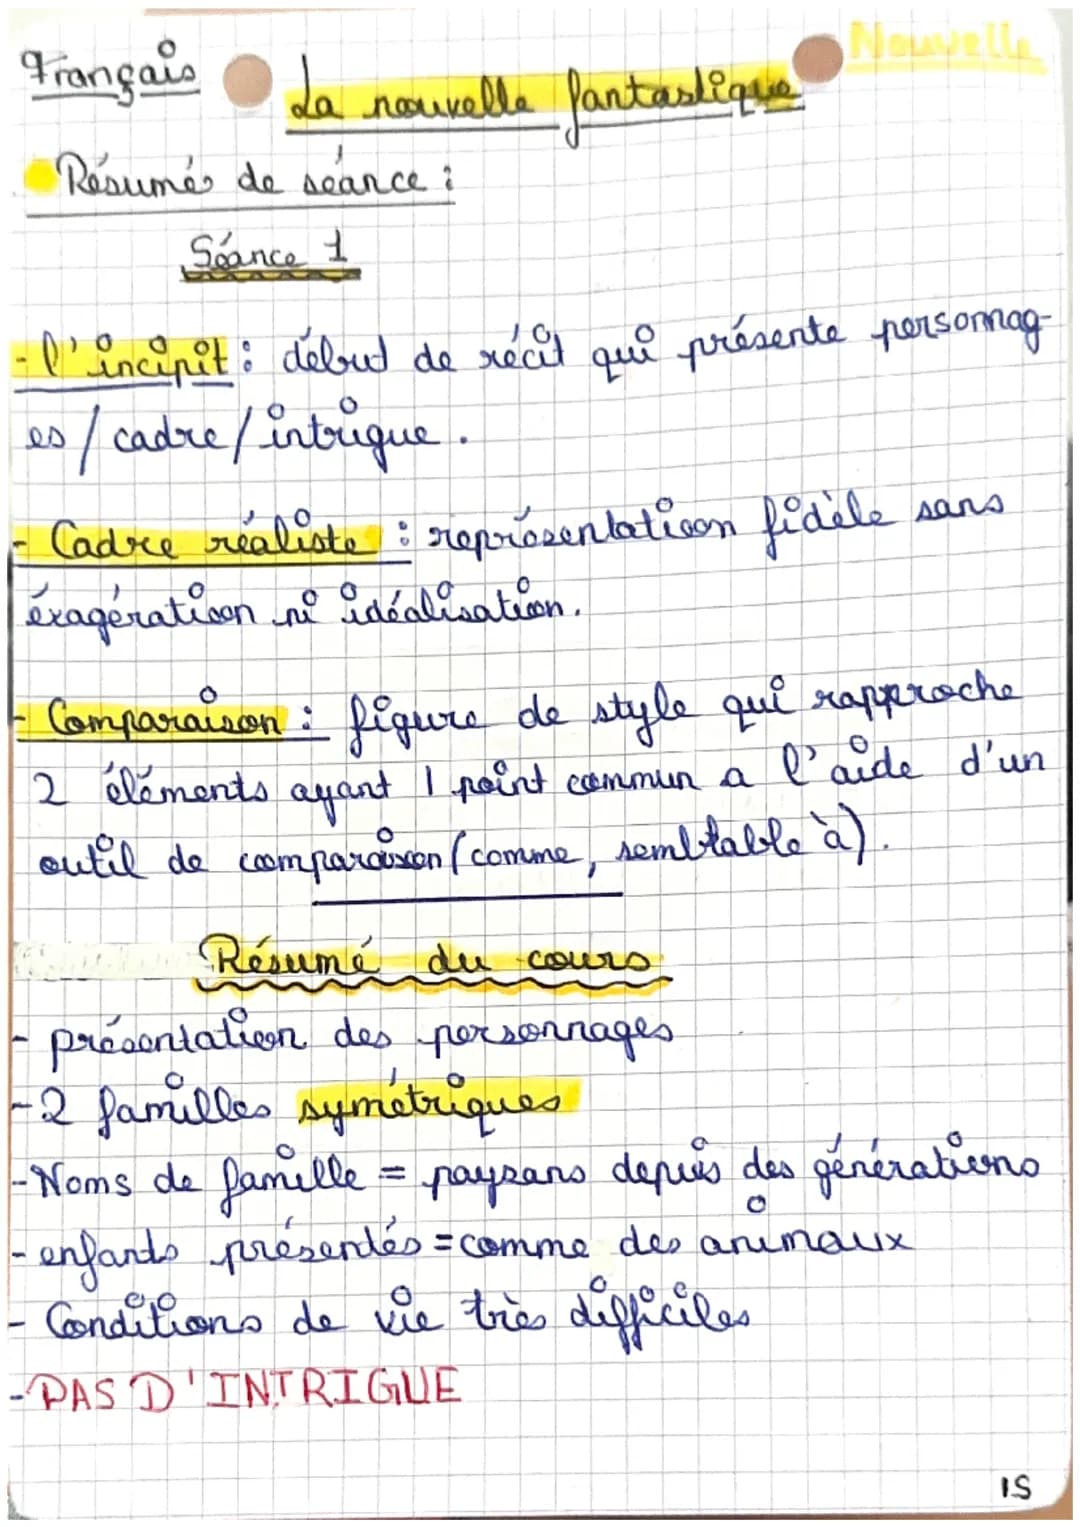 Nouvelle
Français
La nouvelle fantastique
Résumés de séance :
Séance 1
- l'incipit : début de récit qui présente personnag-
es / cadre / intrigue .
- Cadre réaliste : représentation fidèle sans
éxagération ni idéalisation.
- Comparaison : figure de style qui rapproche
2 éléments ayant 1 point commun a l'aide d'un
outil de comparaison (comme, semblable à) .
Résumé du cours
- présentation des personnages
- 2 familles symétriques
- Noms de famille = paysans depuis des générations
- enfants présentés = comme des animaux
- Conditions de vie très difficiles
- PAS D'INTRIGUE
15